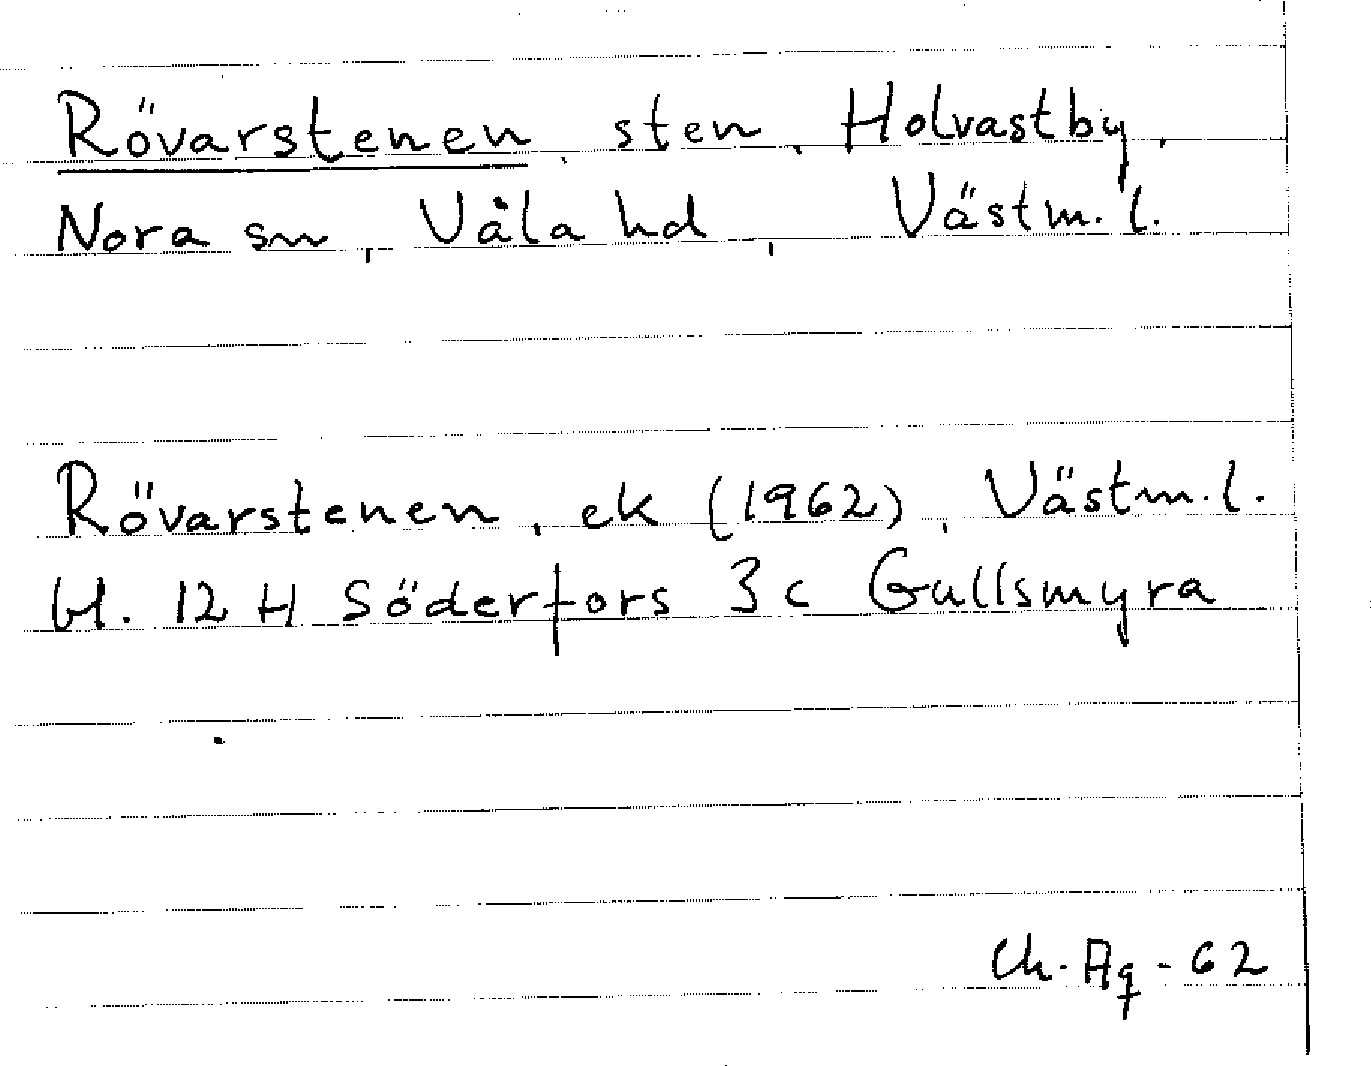 Rövarstenen, sten, Holvastby,
Nora sn, Våla hd, Västm. l.
Rövarstenen, ek (1962), Västm. l.
bl. 12 H Söderfors 3 c Gullsmyra
Ch. Aq - 62